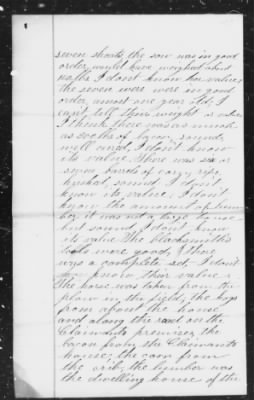 seven shoats, the sow was in good
order, would have weighed about
I don't know her value;
the seven were in good
order, almost one year old; I
can't tell their weight or value
I think there was as much
as 200 lbs of bacon, sound,
well cured, I don't know
its value. There was six or
seven barrels of corn, ripe,
husked, sound I don't
know its value, I don't
know the amount of lumber
it was not a large house
but sound, I don't know
its value. The blacksmith's
tools were good, & there
was a complete set, I don't
know their value.
The horse was taken from the
plow in the field; the hogs
from about the house
and along the road on the
Claimants premises; the
bacon from the Claimants
house; the corn from
the crib, the lumber was
the dwelling house of the